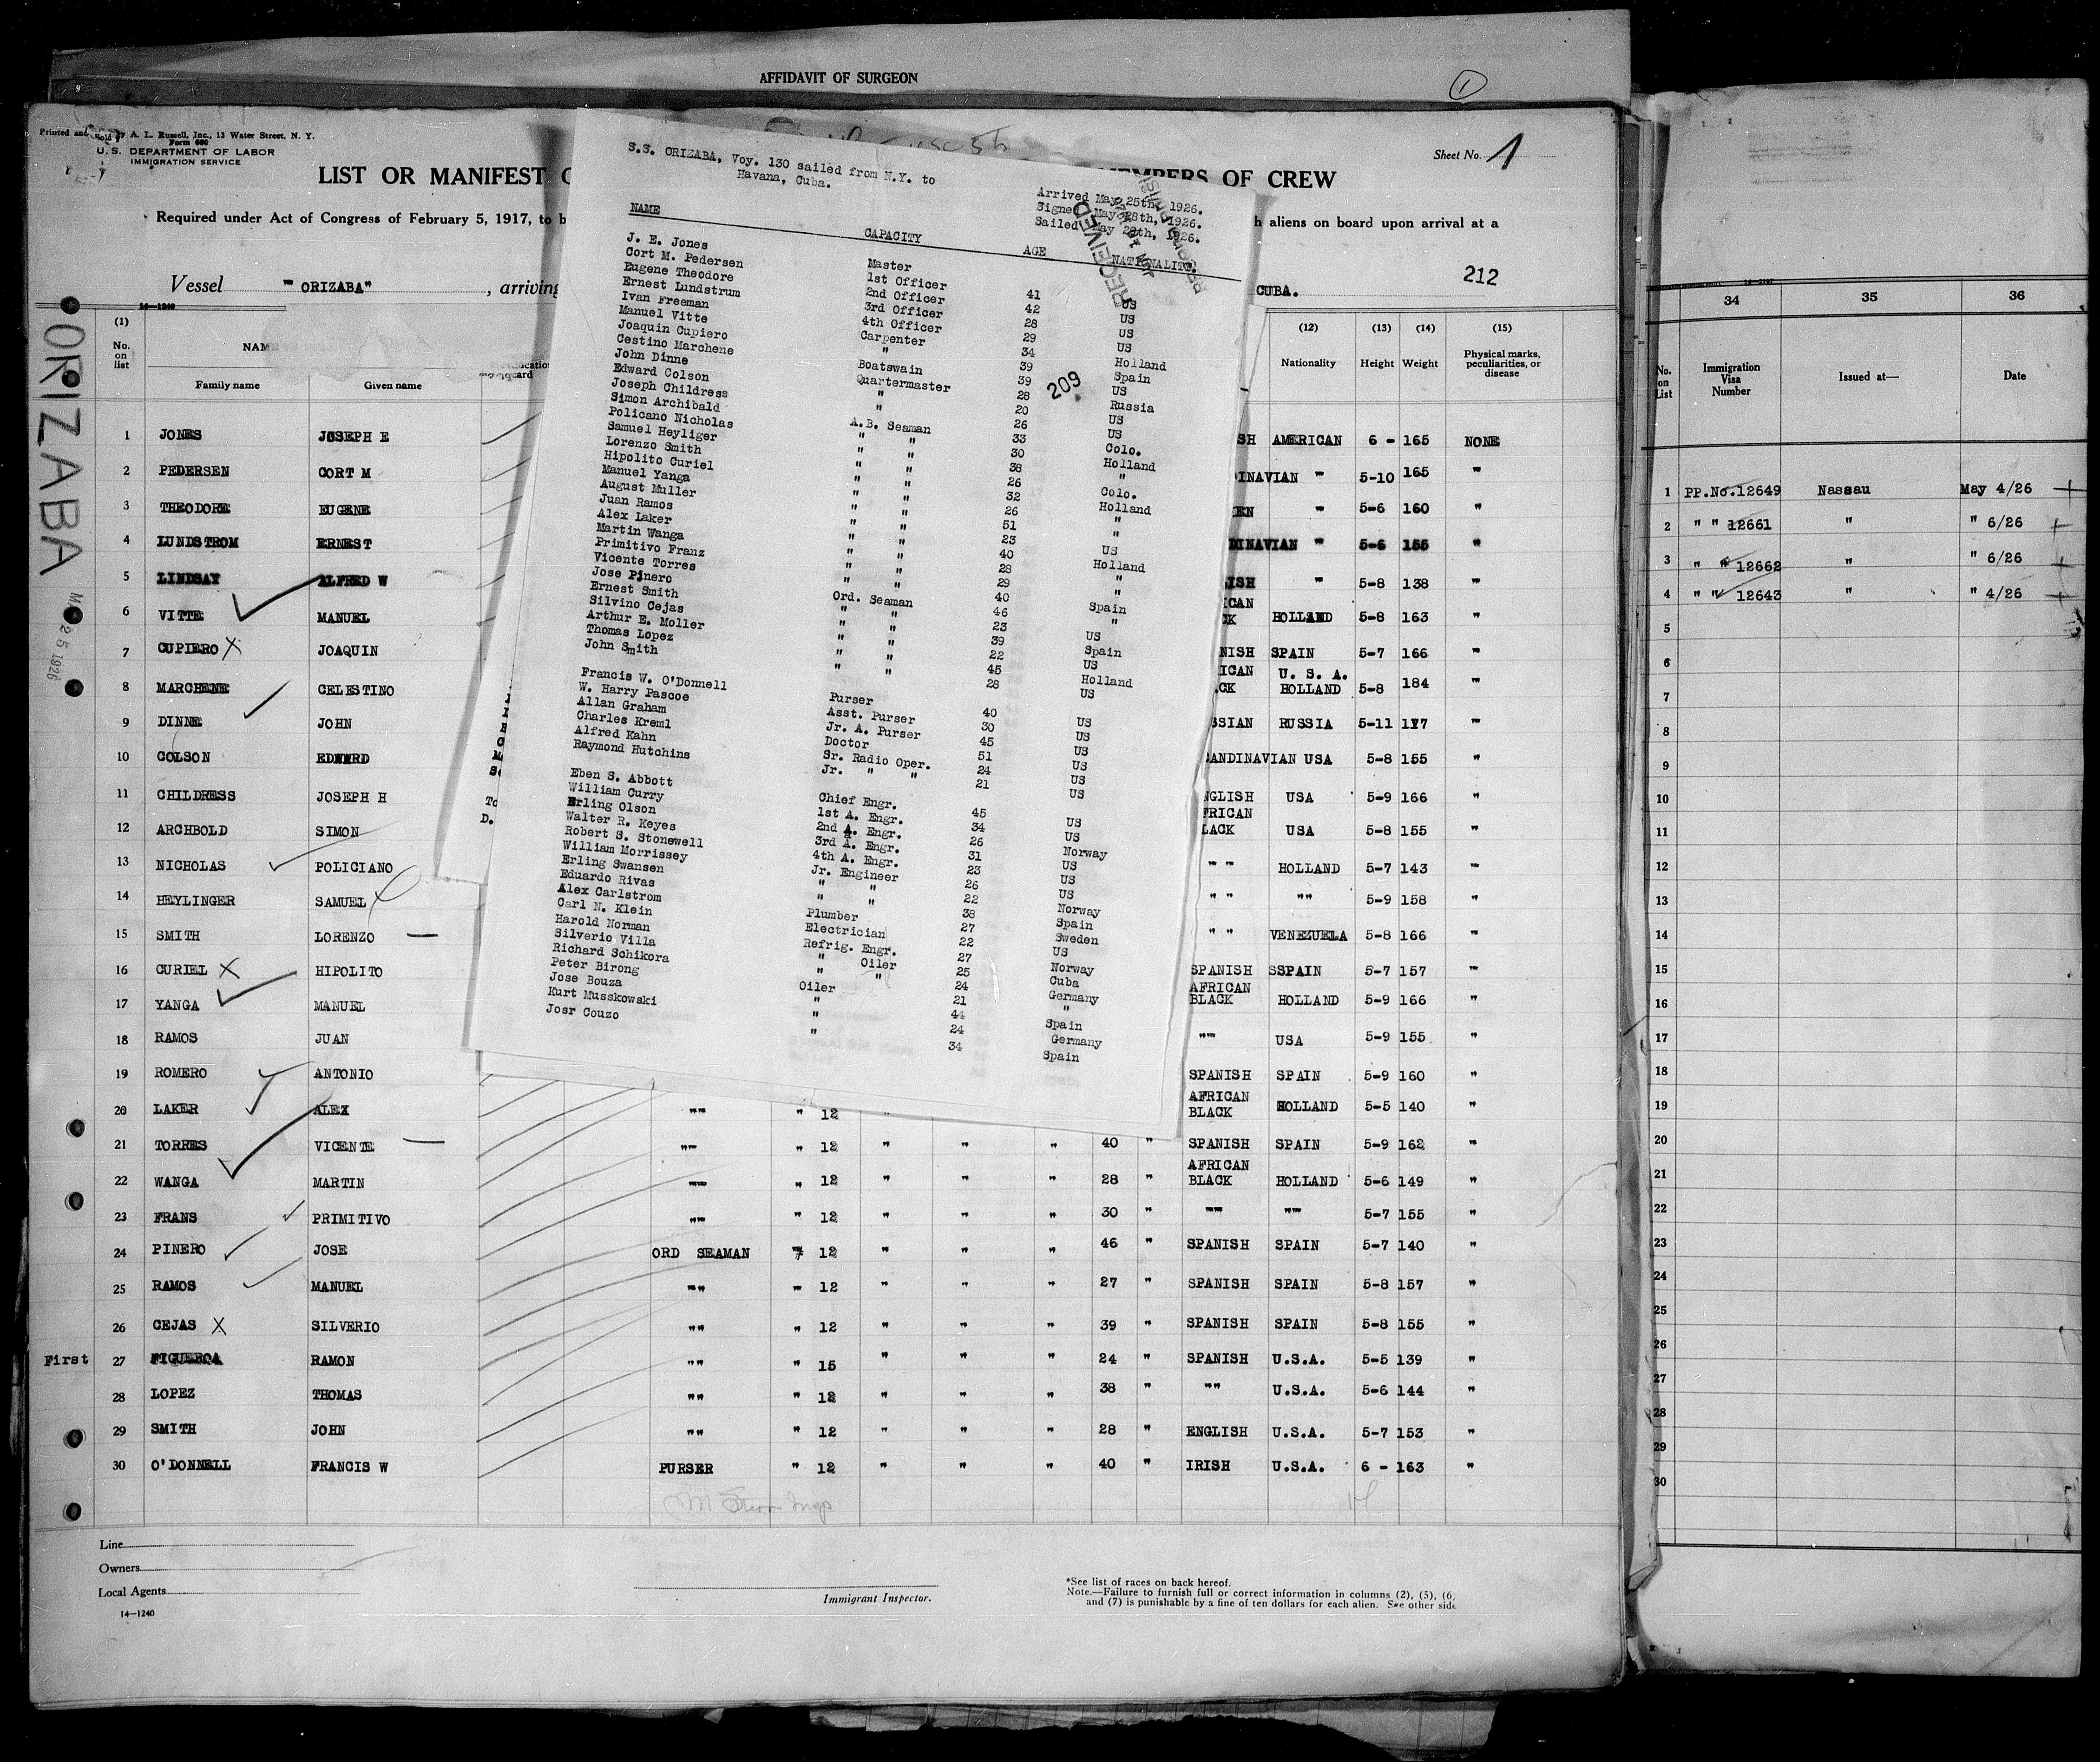 AFFIDAVIT OF SURGEON
1
Printed and Sold by A. L. Russell, Inc., 13 Water Street, N. Y.
Form 680
U. S. DEPARTMENT OF LABOR
IMMIGRATION SERVICE
Sheet No. 1
LIST OR MANIFEST
MEMBERS OF CREW
Required under Act of Congress of February 5, 1917, to b
h aliens on board upon arrival at a
Vessel "ORIZABA", arriving
CUBA.
212
14-1240
ORIZABA
25 1926
(1) (12) (13) (14) (15)
No. on list Family name Given name Nationality Height Weight Physical marks, peculiarities, or disease
1 JONES JOSEPH E SH AMERICAN 6 - 165 NONE
2 PEDERSEN CORT M INAVIAN " 5-10 165 "
3 THEODORE EUGENE EN " 5-6 160 "
4 LUNDSTROM ERNEST INAVIAN " 5-6 155 "
5 LINDSAY ALFRED W ISH " 5-8 138 "
6 VITTE MANUEL ICAN CK HOLLAND 5-8 163 "
7 CUPIERO X JOAQUIN NISH SPAIN 5-7 166 "
8 MARCHENE CELESTINO ICAN CK U. S. A. HOLLAND 5-8 184 "
9 DINNE JOHN SSIAN RUSSIA 5-11 177 "
10 COLSON EDWARD ANDINAVIAN USA 5-8 155 "
11 CHILDRESS JOSEPH H NGLISH USA 5-9 166 "
12 ARCHBOLD SIMON FRICAN LACK USA 5-8 155 "
13 NICHOLAS POLICIANO "" HOLLAND 5-7 143 "
14 HEYLINGER SAMUEL " " "" 5-9 158 "
15 SMITH LORENZO " " VENEZUELA 5-8 166 "
16 CURIEL X HIPOLITO SPANISH SSPAIN 5-7 157 "
17 YANGA MANUEL AFRICAN BLACK HOLLAND 5-9 166 "
18 RAMOS JUAN "" USA 5-9 155 "
19 ROMERO ANTONIO SPANISH SPAIN 5-9 160 "
20 LAKER ALEX "" " 12 " AFRICAN BLACK HOLLAND 5-5 140 "
21 TORRES VICENTE "" " 12 " " " 40 " SPANISH SPAIN 5-9 162 "
22 WANGA MARTIN "" " 12 " " " 28 " AFRICAN BLACK HOLLAND 5-6 149 "
23 FRANS PRIMITIVO "" " 12 " " " 30 " "" "" 5-7 155 "
24 PINERO JOSE ORD SEAMAN " 12 " " " 46 " SPANISH SPAIN 5-7 140 "
25 RAMOS MANUEL "" " 12 " " " 27 " SPANISH SPAIN 5-8 157 "
26 CEJAS X SILVERIO "" " 12 " " " 39 " SPANISH SPAIN 5-8 155 "
First 27 FIGUEROA RAMON "" " 15 " " " 24 " SPANISH U.S.A. 5-5 139 "
28 LOPEZ THOMAS "" " 12 " " " 38 " "" U.S.A. 5-6 144 "
29 SMITH JOHN "" " 12 " " " 28 " ENGLISH U.S.A. 5-7 153 "
30 O'DONNELL FRANCIS W PURSER " 12 " " " 40 " IRISH U.S.A. 6 - 163 "
Line
Owners
Local Agents
14-1240
Immigrant Inspector.
*See list of races on back hereof.
Note.—Failure to furnish full or correct information in columns (2), (5), (6,
and (7) is punishable by a fine of ten dollars for each alien. See other side
S.S. ORIZABA, Voy. 130 sailed from N.Y. to
Havana, Cuba.
Arrived May 25th, 1926.
Signed May 28th, 1926.
Sailed May 28th, 1926.
RECEIVED
209
NAME CAPACITY AGE NATIONALITY
J. E. Jones Master 41 US
Cort M. Pedersen 1st Officer 42 US
Eugene Theodore 2nd Officer 28 US
Ernest Lundstrum 3rd Officer 29 US
Ivan Freeman 4th Officer 34 Holland
Manuel Vitte Carpenter 39 Spain
Joaquin Cupiero " 39 US
Cestino Marchene Boatswain 28 Russia
John Dinne Quartermaster 20 US
Edward Colson " 26 US
Joseph Childress " 33 Colo.
Simon Archibald A.B. Seaman 30 Holland
Policano Nicholas " " 38 "
Samuel Heyliger " " 26 Colo.
Lorenzo Smith " " 32 Holland
Hipolito Curiel " " 26 "
Manuel Yanga " " 51 US
August Muller " " 23 Holland
Juan Ramos " " 40 "
Alex Laker " " 28 "
Martin Wanga " " 29 Spain
Primitivo Franz " " 40 "
Vicente Torres " " 46 US
Jose Pinero Ord. Seaman 23 Spain
Ernest Smith " " 39 US
Silvino Cejas " " 22 Holland
Arthur E. Moller " " 45 US
Thomas Lopez " " 28
John Smith " "
Francis W. O'Donnell Purser 40 US
W. Harry Pascoe Asst. Purser 30 US
Allan Graham Jr. A. Purser 45 US
Charles Kreml Doctor 51 US
Alfred Kahn Sr. Radio Oper. 24 US
Raymond Hutchins Jr. " " 21 US
Eben S. Abbott Chief Engr. 45 US
William Curry 1st A. Engr. 34 US
Erling Olson 2nd A. Engr. 26 Norway
Walter R. Keyes 3rd A. Engr. 31 US
Robert S. Stonewell 4th A. Engr. 23 US
William Morrissey Jr. Engineer 26 US
Erling Swansen " " 22 Norway
Eduardo Rivas " " 38 Spain
Alex Carlstrom Plumber 27 Sweden
Carl N. Klein Electrician 22 US
Harold Norman Refrig. Engr. 27 Norway
Silverio Villa " Oiler 25 Cuba
Richard Schikora " " 24 Germany
Peter Birong Oiler 21 "
Jose Bouza " 44 Spain
Kurt Musskowski " 24 Germany
Josr Couzo " 34 Spain
34 35 36
No. on List Immigration Visa Number Issued at— Date
1 PP.No.12649 Nassau May 4/26
2 " " 12661 " " 6/26
3 " " 12662 " " 6/26
4 " " 12643 " " 4/26
5
6
7
8
9
10
11
12
13
14
15
16
17
18
19
20
21
22
23
24
25
26
27
28
29
30